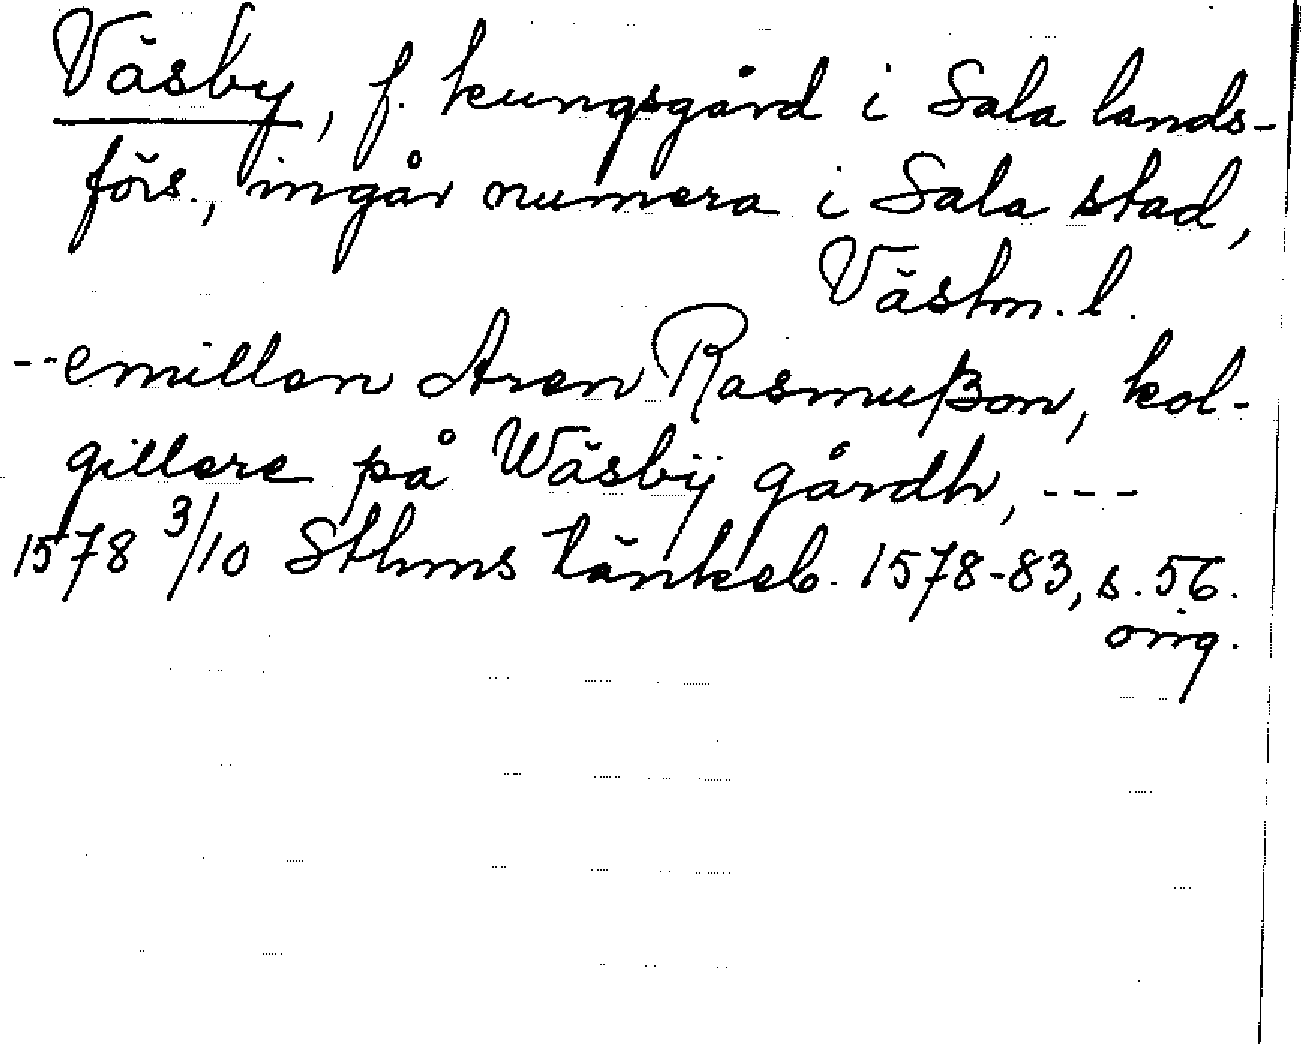 Väsby, f. kungsgård i Sala lands-
förs., ingår numera i Sala stad,
Västm. l.
--emillen Aren Rasmußon, kol-
gillere på Wäsbÿ gårdh, ---
1578 3/10 Sthms tänkeb. 1578-83, s. 56.
orig.